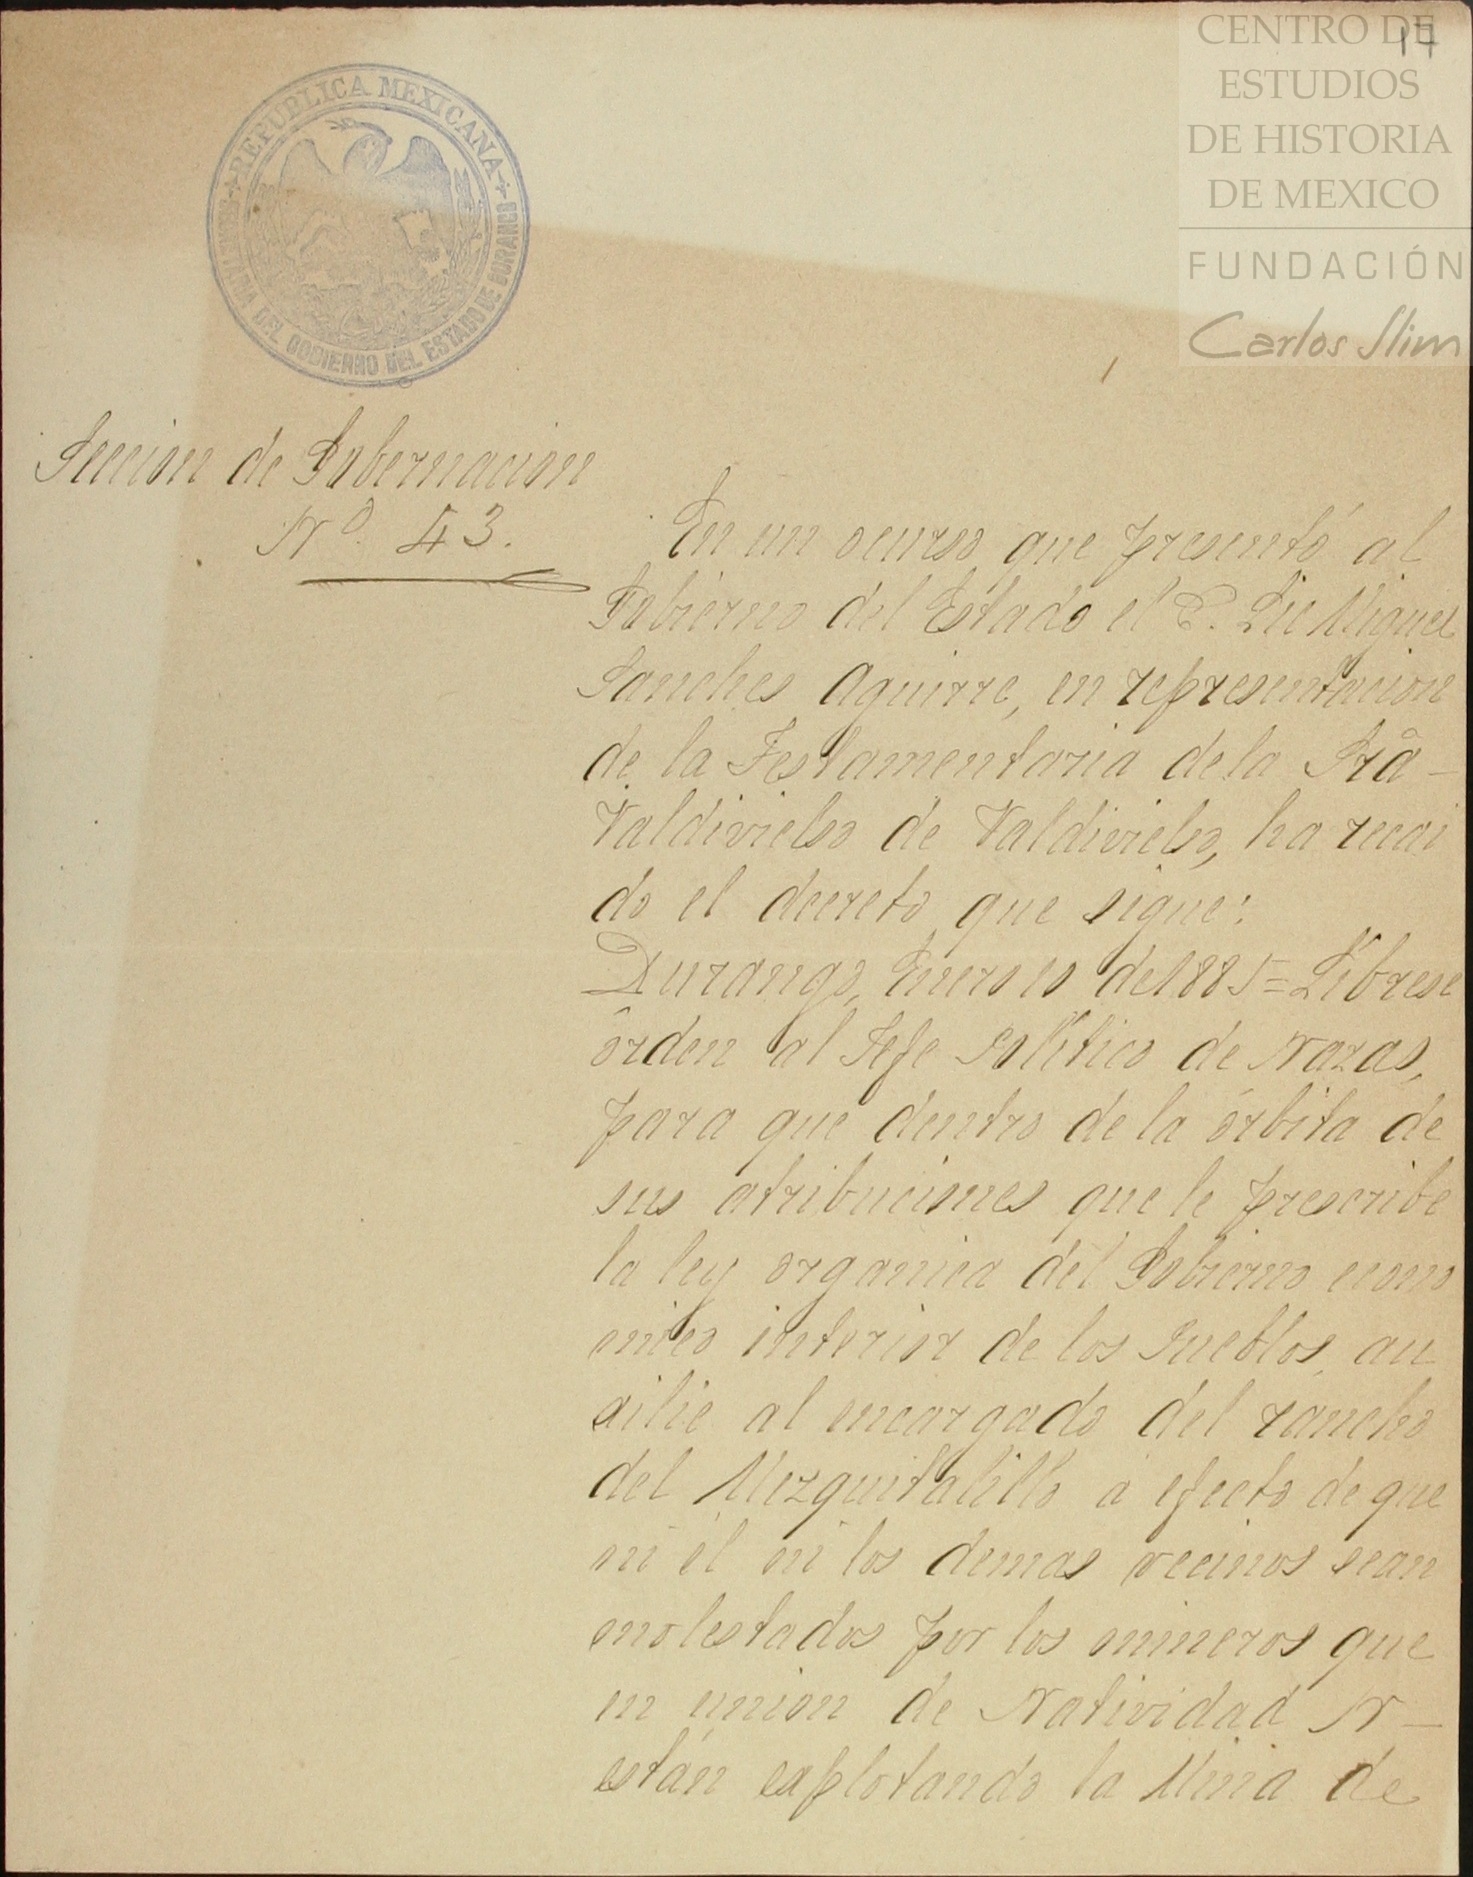 17
CENTRO DE
ESTUDIOS
DE HISTORIA
DE MEXICO
FUNDACIÓN
Carlos Slim
REPUBLICA MEXICANA
SECRETARIA DEL GOBIERNO DEL ESTADO DE DURANGO
Seccion de Gobernacion
Nº 43.
En un ocurso que presentó al
Gobierno del Estado el C. Lic Miguel
Sanches Aguirre, en representacion
de la Testamentaria de la Srâ
Valdivielso de Valdivielso, ha recai
do el decreto que sigue:
Durango, Enero de 1885=Librese
órden al Jefe Politico de Nazas,
para que dentro de la órbita de
sus atribuciones que le prescribe
la ley organica del Gobierno econo
mico interior de los Pueblos, au
xilie al encargado del rancho
del Mezquitalillo á efecto de que
ni él ni los demas vecinos sean
molestados por los mineros que
en union de Natividad N—
están explotando la Mina de